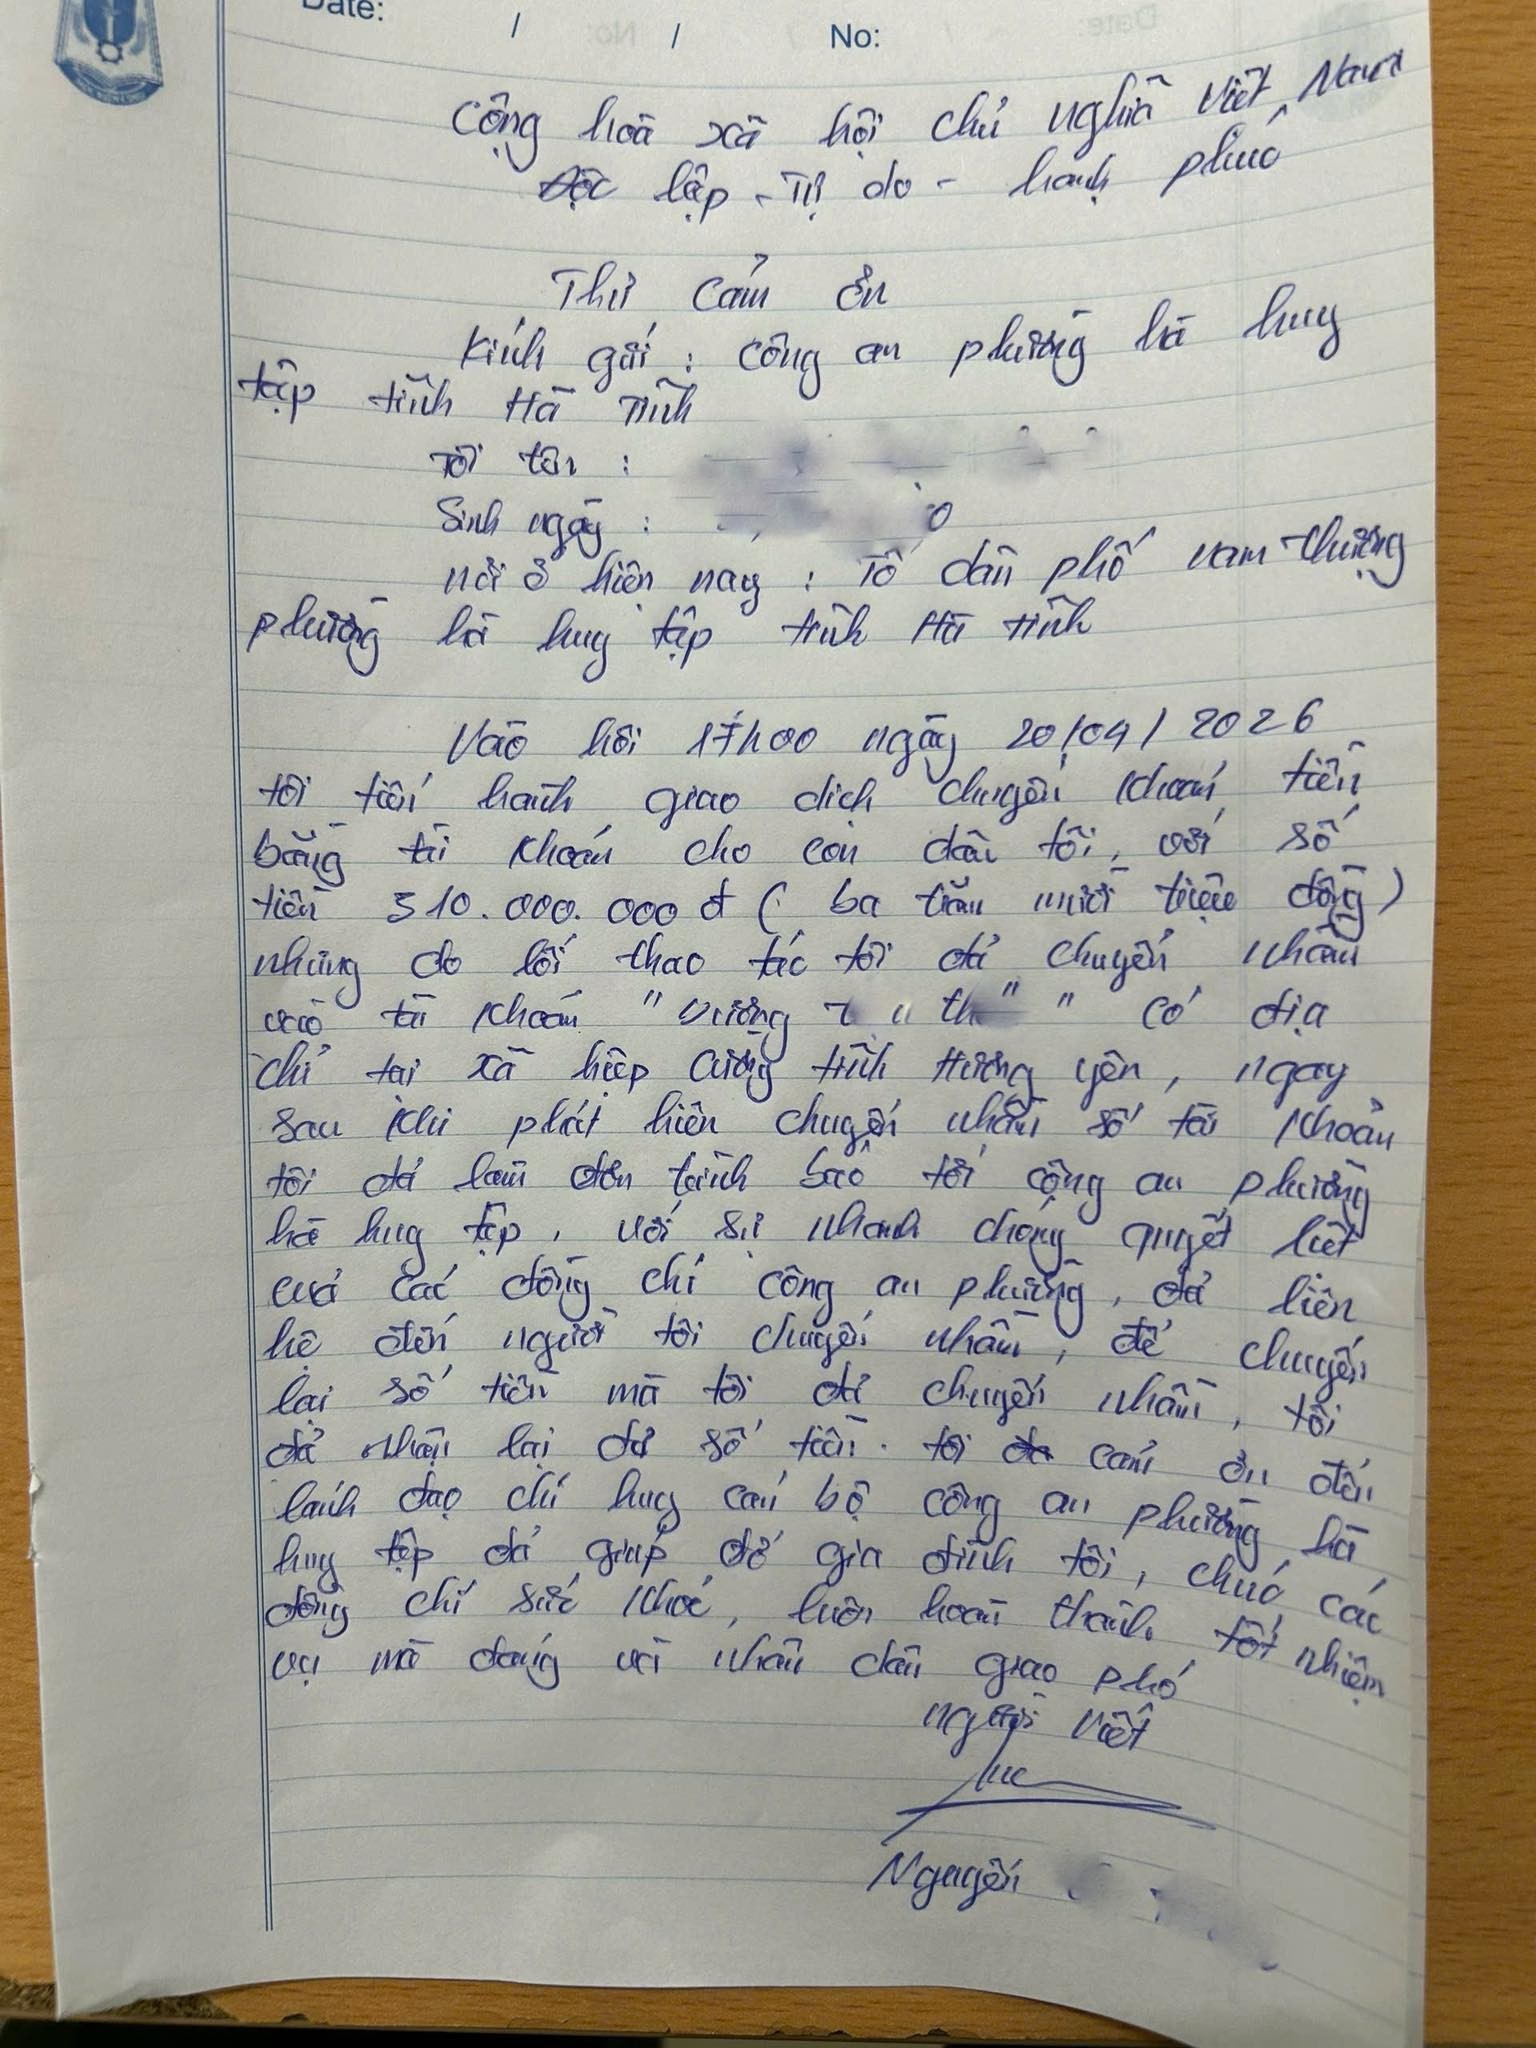 Date: / / No:
Cộng hoà xã hội chủ nghĩa Việt Nam
Độc lập - Tự do - hạnh phúc
Thư cảm ơn
Kính gửi : Công an phường hà huy
tập tỉnh Hà Tĩnh
Tôi tên :
Sinh ngày :
nơi ở hiện nay : Tổ dân phố nam thượng
phường hà huy tập tỉnh Hà tĩnh
Vào hồi 17h00 ngày 20/04/2026
tôi tiến hành giao dịch chuyển khoản tiền
bằng tài khoản cho con dâu tôi, với số
tiền 310.000.000 đ ( ba trăm mười triệu đồng )
nhưng do lỗi thao tác tôi đã chuyển nhầm
vào tài khoản " Vương " có địa
chỉ tại xã hiệp cường tỉnh Hưng yên, ngay
sau khi phát hiện chuyển nhầm số tài khoản
tôi đã làm đơn trình báo tới công an phường
hà huy tập, với sự nhanh chóng quyết liệt
của các đồng chí công an phường, đã liên
hệ đến người tôi chuyển nhầm, để chuyển
lại số tiền mà tôi đã chuyển nhầm, tôi
đã nhận lại đủ số tiền. tôi cảm ơn đến
lãnh đạo chỉ huy cán bộ công an phường hà
huy tập đã giúp đỡ gia đình tôi, chúc các
đồng chí sức khoẻ, luôn hoàn thành tốt nhiệm
vụ mà đảng và nhân dân giao phó
người viết
Nguyễn